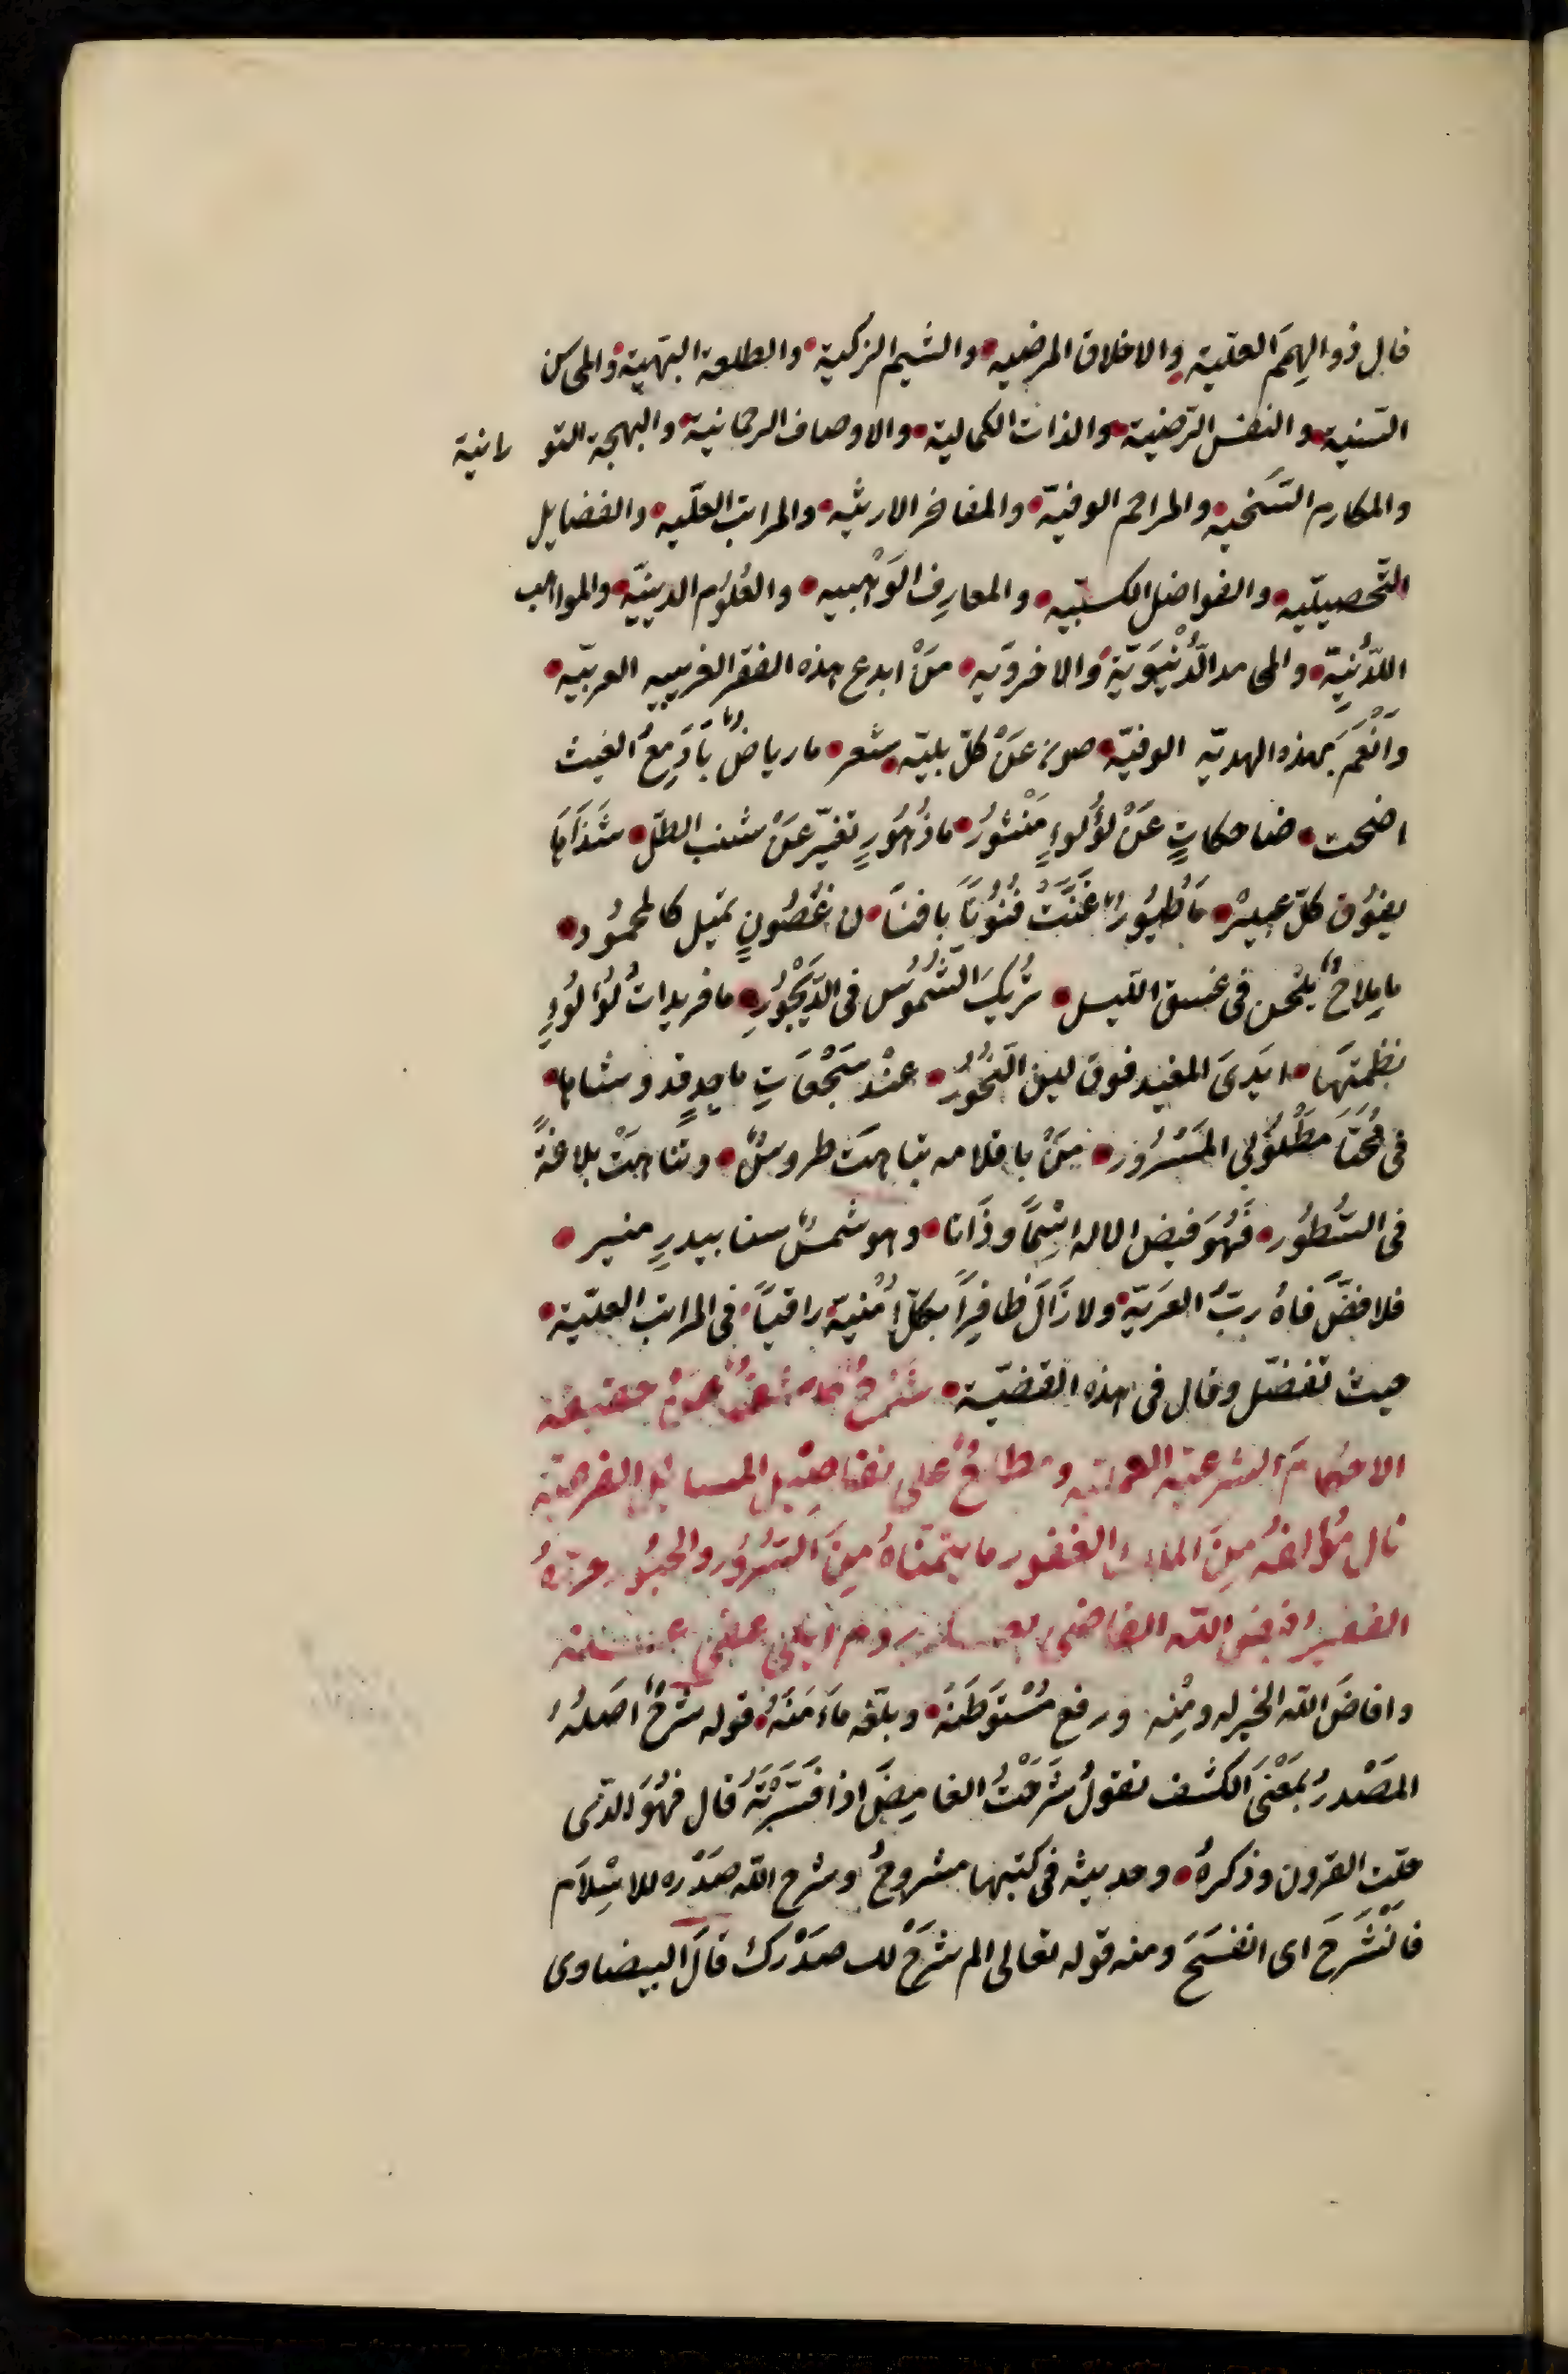 قال ذو الهمم العليّة والاخلاق المرضيه والشيم الزكية والطلعة البهية والمحاسن
السّنية والنفس الرّضية والذات الكمالية والاوصاف الرحمانية والبهجة النورانية
والمكارم السّخية والمراحم الوفيّة والمفاخر الارثيه والمراتب العلّيه والفضايل
التّحصيليّه والفواضل الكسبّيه والمعارف الوَهْبيه والعُلوُم الدينيّه والمواهب
اللّدُنيّة والمحامد الدُّنْيَوَيّة والاخرويّه مَنْ ابدع هذه الفقر الغريبه العربيّه
وَانْعَمَ بهذه الهديّه الوفيّه صونه عَنْ كلّ بليّه شعر ما رياضٌ بأدمع الغيث
اضحت ضاحكاتٍ عَنْ لؤلوءٍ مَنْثورُ ما زُهوَرٍ تفترّ عَنْ شنب الطّل شذَاهَا
يفوُق كلّ عبيرْ مَا طُيوُرٌ غَنَّتْ فُنوُنًا بافنَا ن غُصُونٍ تميل كالمخموُر
ما مِلاحٌ يلحن في غسق الليل تُرِيكَ الشُّموُس في الدَّيْجوُرِ ما فريداتُ لؤلوءٍ
نظمتَها ايدَى المغيد فوق ليق النّحوُرُ عنْدَ سَجْعَاتِ ماجدٍ قد وشاها
في مُحَيَّا مَطْلوُبى المَسْرُور مَنْ باقلامه تباهت طروسٌ وتناهتْ بلاغةً
في السّطُور فَهُوَ فيض الاله اسْمًا وذَاتا وهو شمسٌ سنا ببدرٍ منير
فلا فضَّ فاهُ ربّ العَرَيّة ولا زَالَ ظافِرًا بكلّ اُمْنيّة راقيًا في المراتب العليّة
حيث تفضّل وقال في هذه القضيّة شرحٌ كاشفٌ عَنْ حقيقة
الاحكام الشرعيّه العمليّه ومطلعٌ على تفاصيل المسايل الفرعيّه
نال مُؤلفهُ مِنَ الملك الغفور ما يتمنّاهُ مِنَ السّرُوُر والحبُور حرّرهُ
الفقير فيض اللّه القاضي بعسكر روم ايلي عفي عنه
وافاضَ اللّه الخير له ومِنْه ورفع مُسْتوَطَنَهُ وبلّغه مَأمَنَهُ قوله شرحٌ اصلهُ
المَصْدرُ بمَعْنىَ الكشف تقولُ شَرحْتُ الغامِضَ اذا فَسَّرْتَهُ قال فهُوَ الذّى
حلّت القرون وذكرهُ وحديثه في كتبها مشروحُ وشرح اللّه صَدْره للاسْلاَم
فانْشَرحَ اى انفسَحَ ومنه قوله تعالى الم نشرَحْ لك صدْرك قالَ البيضاوى